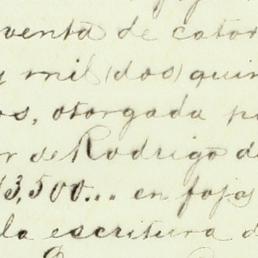 venta de cator
y mil (dos) quin
os, otorgada p
or de Rodrigo d
13,500... en fojas
la escritura d